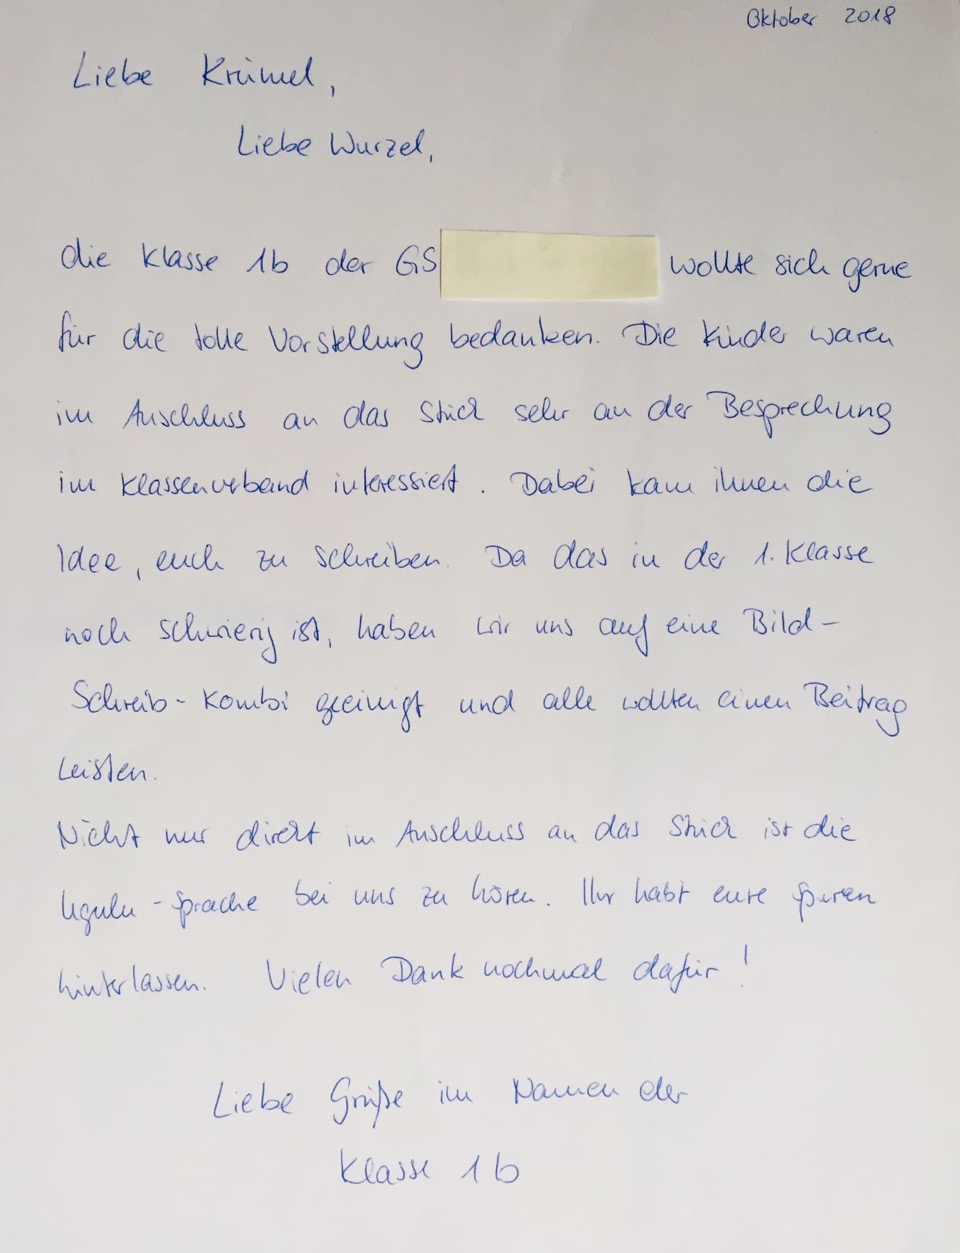 Oktober 2018
Liebe Krümel,
Liebe Wurzel,
die Klasse 1b der GS wollte sich gerne
für die tolle Vorstellung bedanken. Die Kinder waren
im Anschluss an das Stück sehr an der Besprechung
im Klassenverband interessiert. Dabei kam ihnen die
Idee, euch zu schreiben. Da das in der 1. Klasse
noch schwierig ist, haben wir uns auf eine Bild-
Schreib-Kombi geeinigt und alle wollten einen Beitrag
leisten.
Nicht nur direkt im Anschluss an das Stück ist die
Ugulu-Sprache bei uns zu hören. Ihr habt eure Spuren
hinterlassen. Vielen Dank nochmal dafür!
Liebe Grüße im Namen der
Klasse 1b